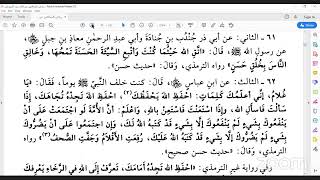 ٦١ - الثاني: عن أبي ذر جُنْدُبِ بنِ جُنَادَةَ وأبي عبدِ الرحمٰنِ معاذِ بنِ جبلٍ ﷺ،
عن رسولِ الله ﷺ، قال: «اتَّقِ الله حَيْثُمَا كُنْتَ وَأَتْبِعِ السَّيِّئَةَ الحَسَنَةَ تَمْحُهَا، وَخَالِقِ
النَّاسَ بِخُلُقٍ حَسَنٍ» رواه الترمذي، وقال: «حديث حسن».
٦٢ - الثالث: عن ابنِ عباسٍ، قال: كنت خلف النَّبِيِّ ﷺ يوماً، فَقَالَ: «يَا
غُلَامُ، إِنِّي أُعلِّمُكَ كَلِمَاتٍ: احْفَظِ اللهَ يَحْفَظْكَ، احْفَظِ اللهَ تَجِدْهُ تُجَاهَكَ، إِذَا سَأَلْتَ
فَاسْأَلِ الله، وَإِذَا اسْتَعَنْتَ فَاسْتَعِنْ بِاللهِ، وَاعْلَمْ: أَنَّ الأُمَّةَ لَو اجْتَمَعَتْ عَلَى أَنْ يَنْفَعُوكَ
بِشَيْءٍ لَمْ يَنْفَعُوكَ إِلَّا بِشَيْءٍ قَدْ كَتَبَهُ اللهُ لَكَ، وَإِنِ اجْتَمَعُوا عَلَى أَنْ يَضُرُّوكَ
بِشَيْءٍ لَمْ يَضُرُّوكَ إِلَّا بِشَيْءٍ قَدْ كَتَبَهُ اللهُ عَلَيْكَ، رُفِعَتِ الأَقْلَامُ وَجَفَّتِ الصُّحُفُ» رواه
الترمذي، وقال: «حديث حسن صحيح».
وفي رواية غيرِ الترمذي: «احْفَظِ الله تَجِدْهُ أَمَامَكَ، تَعَرَّفْ إِلَى اللهِ في الرَّخَاءِ يَعْرِفْكَ